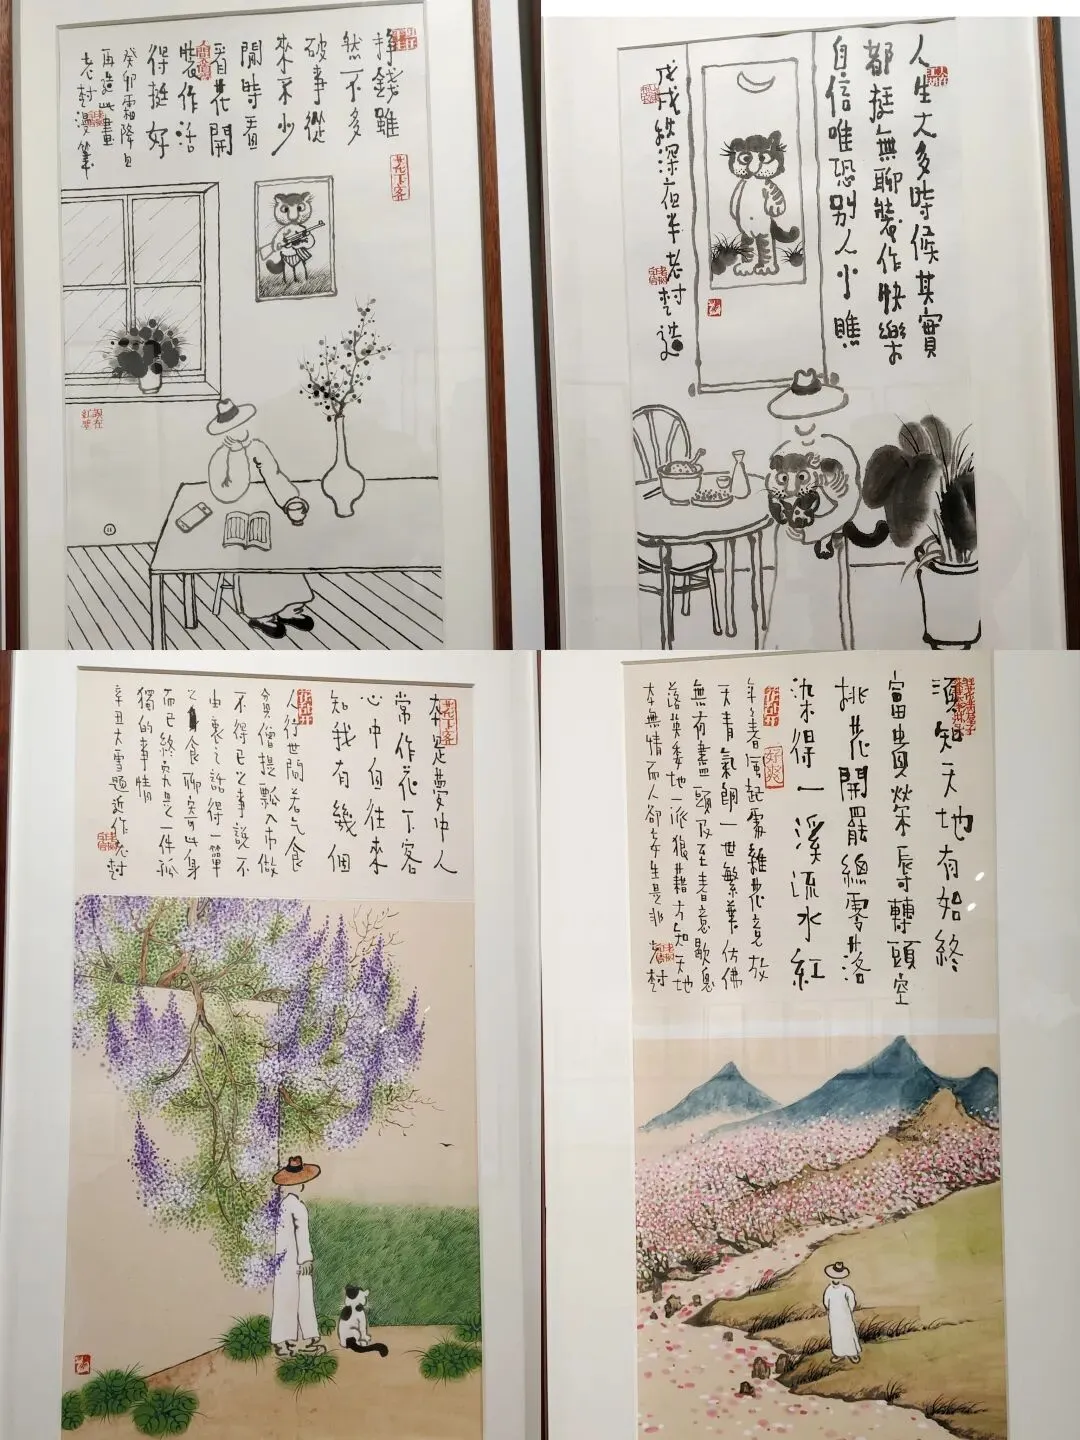 掙錢雖
然不多
破事從
來不少
閒時看
看花開
裝作活
得挺好
癸卯霜降日
再造此畫
老村漫筆
花下客
人生大多時候其實
都挺無聊裝作快樂
自信唯恐别人小瞧
戊戌秋深夜半老村造
本是夢中人
常作花下客
心中自往來
知我有幾個
人行世間若乞食
貧僧提瓢入市做
不得已之事說不
由衷之話得一簞
之食聊寄此身
而已終究是一件孤
獨的事情
辛丑大雪題近作老村
須知天地有始終
富貴榮辱轉頭空
桃花開罷總零落
染得一溪流水紅
年年春風起處雜花意放
天青氣朗一世繁華仿佛
無有盡頭及至春意歇息
落英委地一派狼藉方知天地
本無情而人卻去生是非老村
好爽